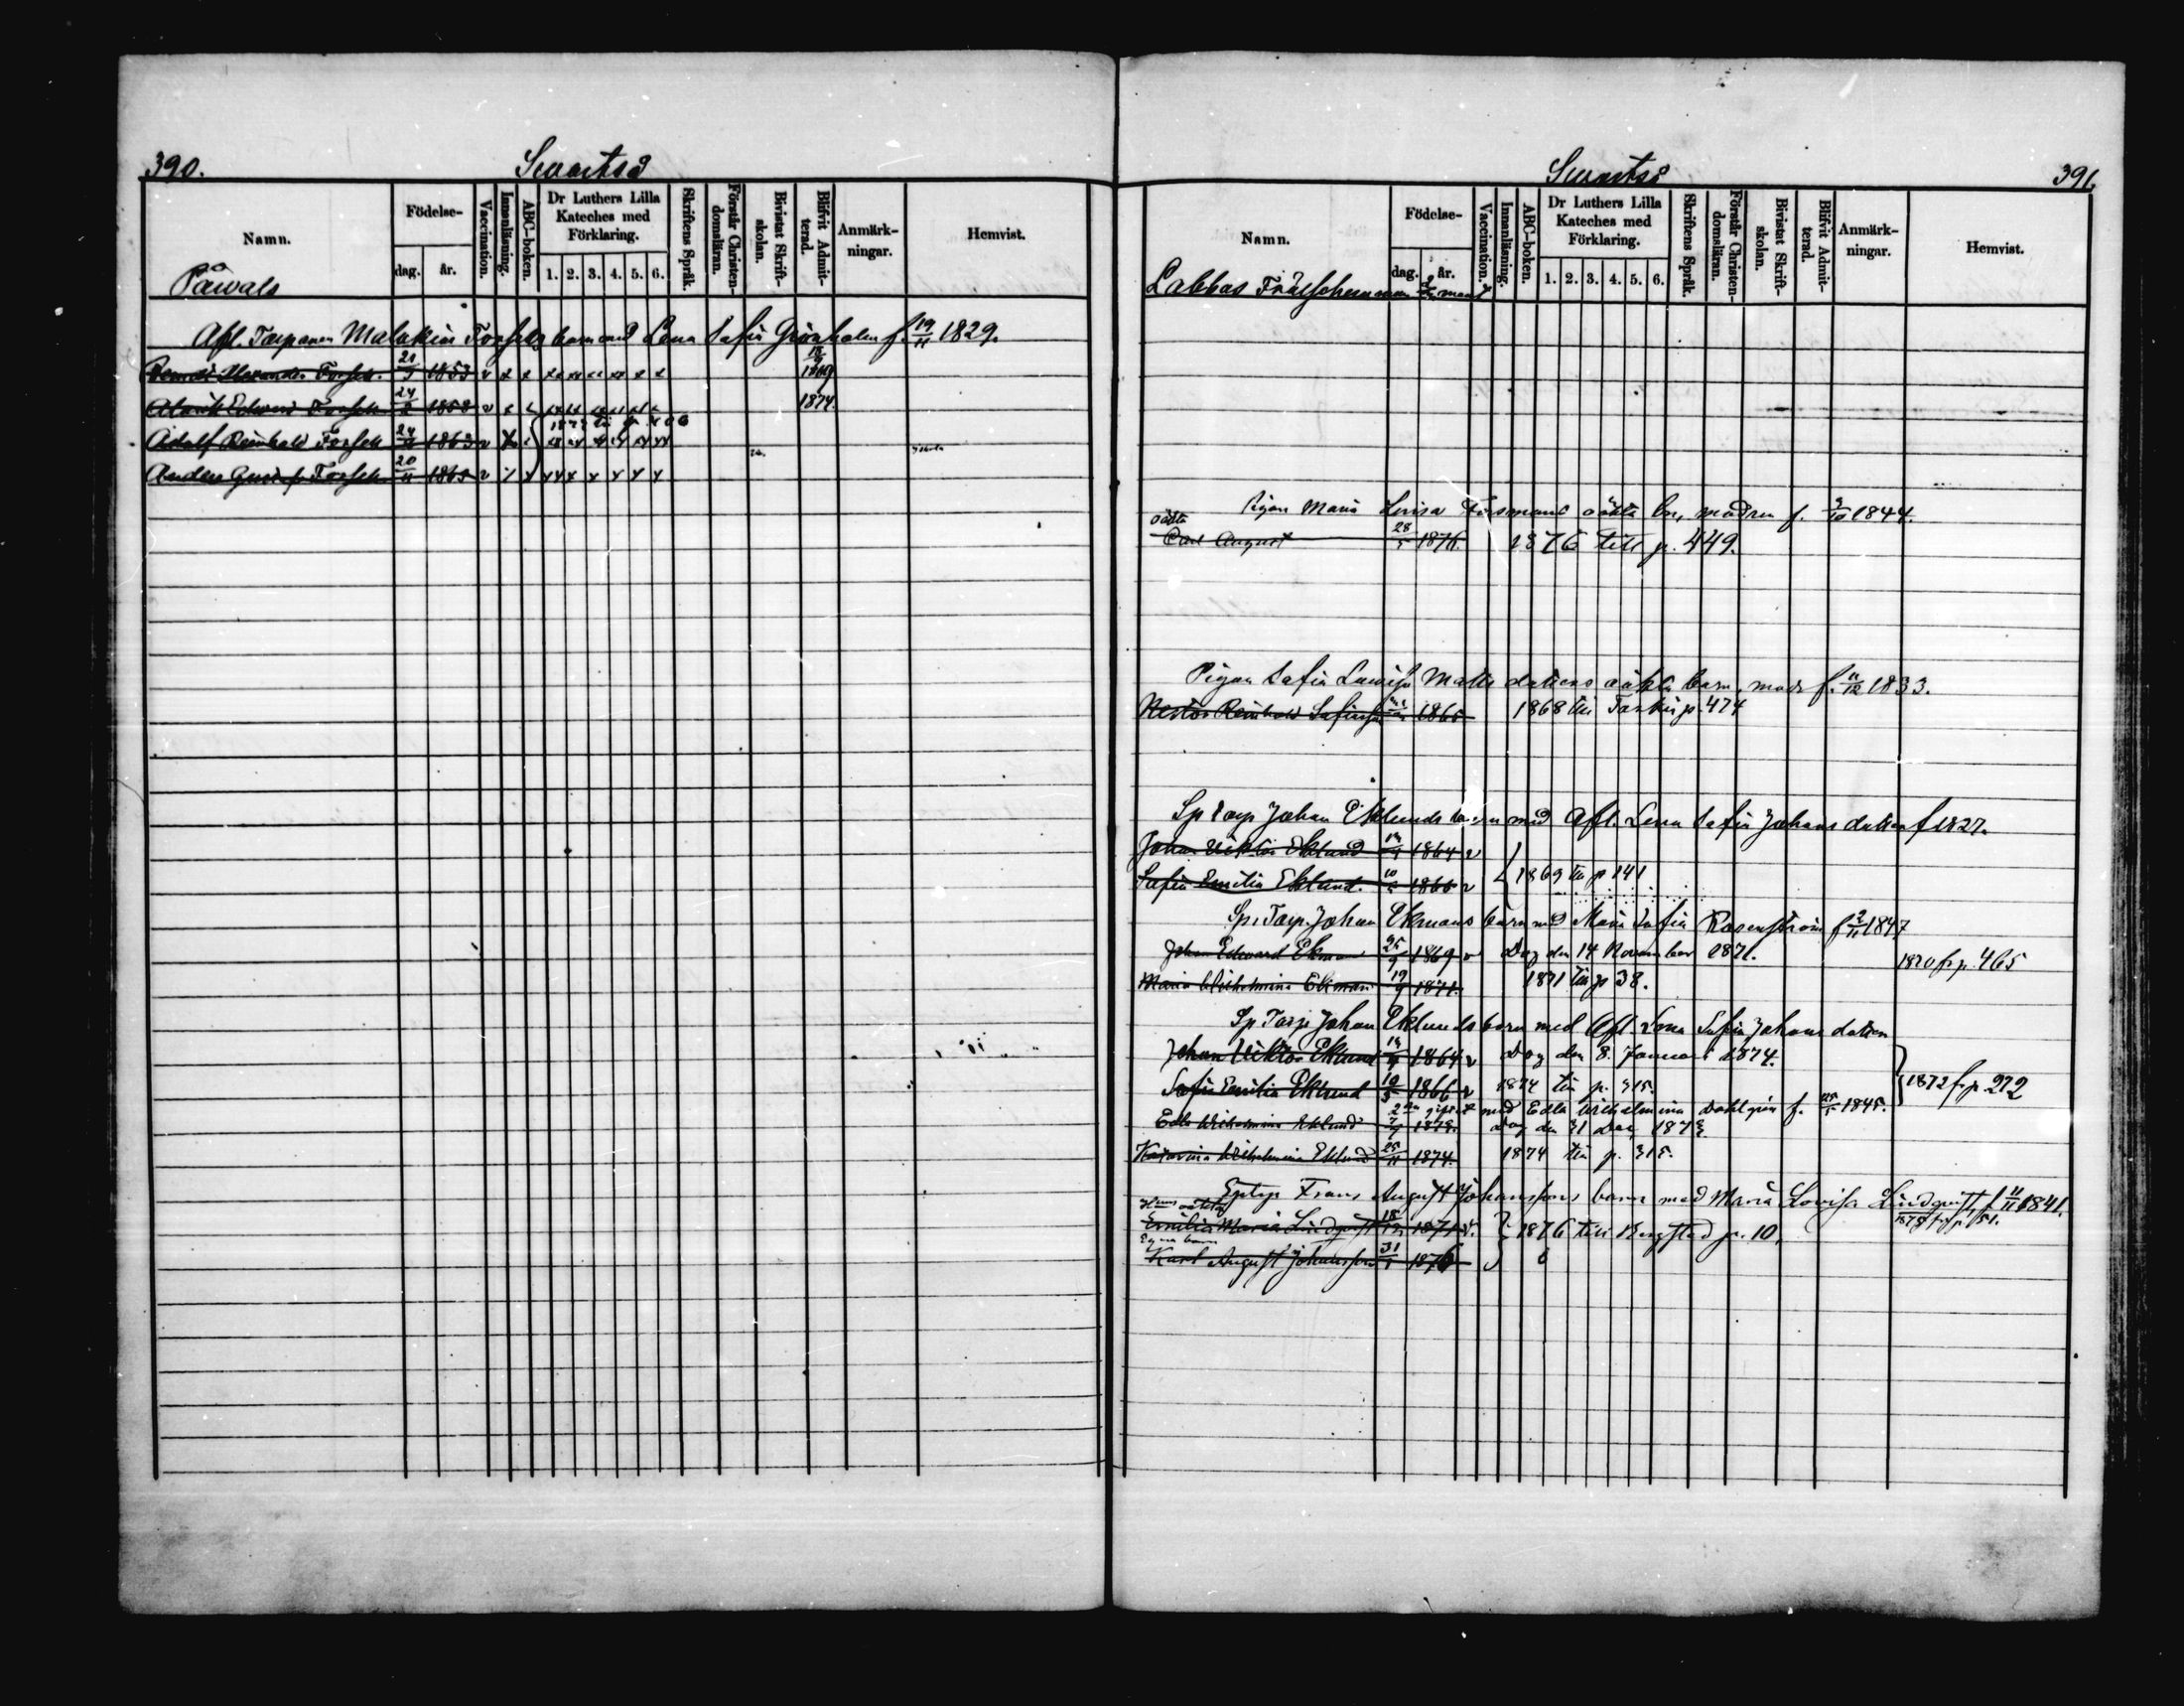 390.
Swartså
Namn.
Födelse-
dag.
år.
Vaccination.
Innanläsning.
ABC-boken.
Dr Luthers Lilla Kateches med Förklaring.
1. 2. 3. 4. 5. 6.
Skriftens Språk.
Förstår Christendomsläran.
Bivistat Skriftskolan.
Blifvit Admitterad.
Anmärk-ningar.
Hemvist.
Påwals
Afl. Torparen Malakias Forsells barn med Lena Safia Grönholm f. 19/11 1829.
Alexander Forsell. 21 1853 v x x 1869
Alarik Edward Forsell 24/2 1858 v 1874.
1873 till p. 406
Adolf Reinhold Forsell 24 1863 v
Anders Gustaf Forsell 20/11 1865 v
391.
Swartså
Namn.
Födelse-
dag.
år.
Vaccination.
Innanläsning.
ABC-boken.
Dr Luthers Lilla Kateches med Förklaring.
1. 2. 3. 4. 5. 6.
Skriftens Språk.
Förstår Christendomsläran.
Bivistat Skriftskolan.
Blifvit Admitterad.
Anmärk-ningar.
Hemvist.
Labbas
Pigan Maria Lovisa Forsmans oäkta bn, modren f. 1844.
oäkta
Carl August 28/5 1876. 1876 till p. 449.
Pigan Safia Lovisa Matts dotters oäkta barn, modr f. 11/12 1833.
Nestor Reinhold 1865 1868 till p. 474
Sp Torp Johan Eklunds barn med Afl. Lena Safia Johans dotter f 1827.
Johan Viktor Eklund 1864 v
Safia Emilia Eklund. 10 1866 v 1869 till p 141
Sp. Torp. Johan Ekmans barn med Maria Safia Rosenström f 2/11 1847
Johan Edward Ekman 25/9 1869 v Dog den 14 November 1871. 1870 fr p. 465
Maria Wilhelmina Ekman 19/9 1871. 1871 till p 38.
Sp Torp Johan Eklunds barn med Afl Lena Safia Johans dotter
Johan Viktor Eklund 1864 v Dog den 8. Januari 1874.
Safia Emilia Eklund 10/5 1866 v 1874 till p. 315. 1872 fr p. 212
2dra giftet med Edla Wilhelmina f. 1845.
Edla Wilhelmina Eklund 1873. Dog den 31 Dec. 1873
Katarina Wilhelmina Eklund 25/11 1874. 1874 till p. 315.
Frans August Johanssons barn med Maria Lovisa Lindqvist, f 11/11 1841.
oäkta
Emilia Maria Lindqvist 18/12 1871 v. 1876 till p. 10.
Egna barn
Karl August Johansson 31 1876